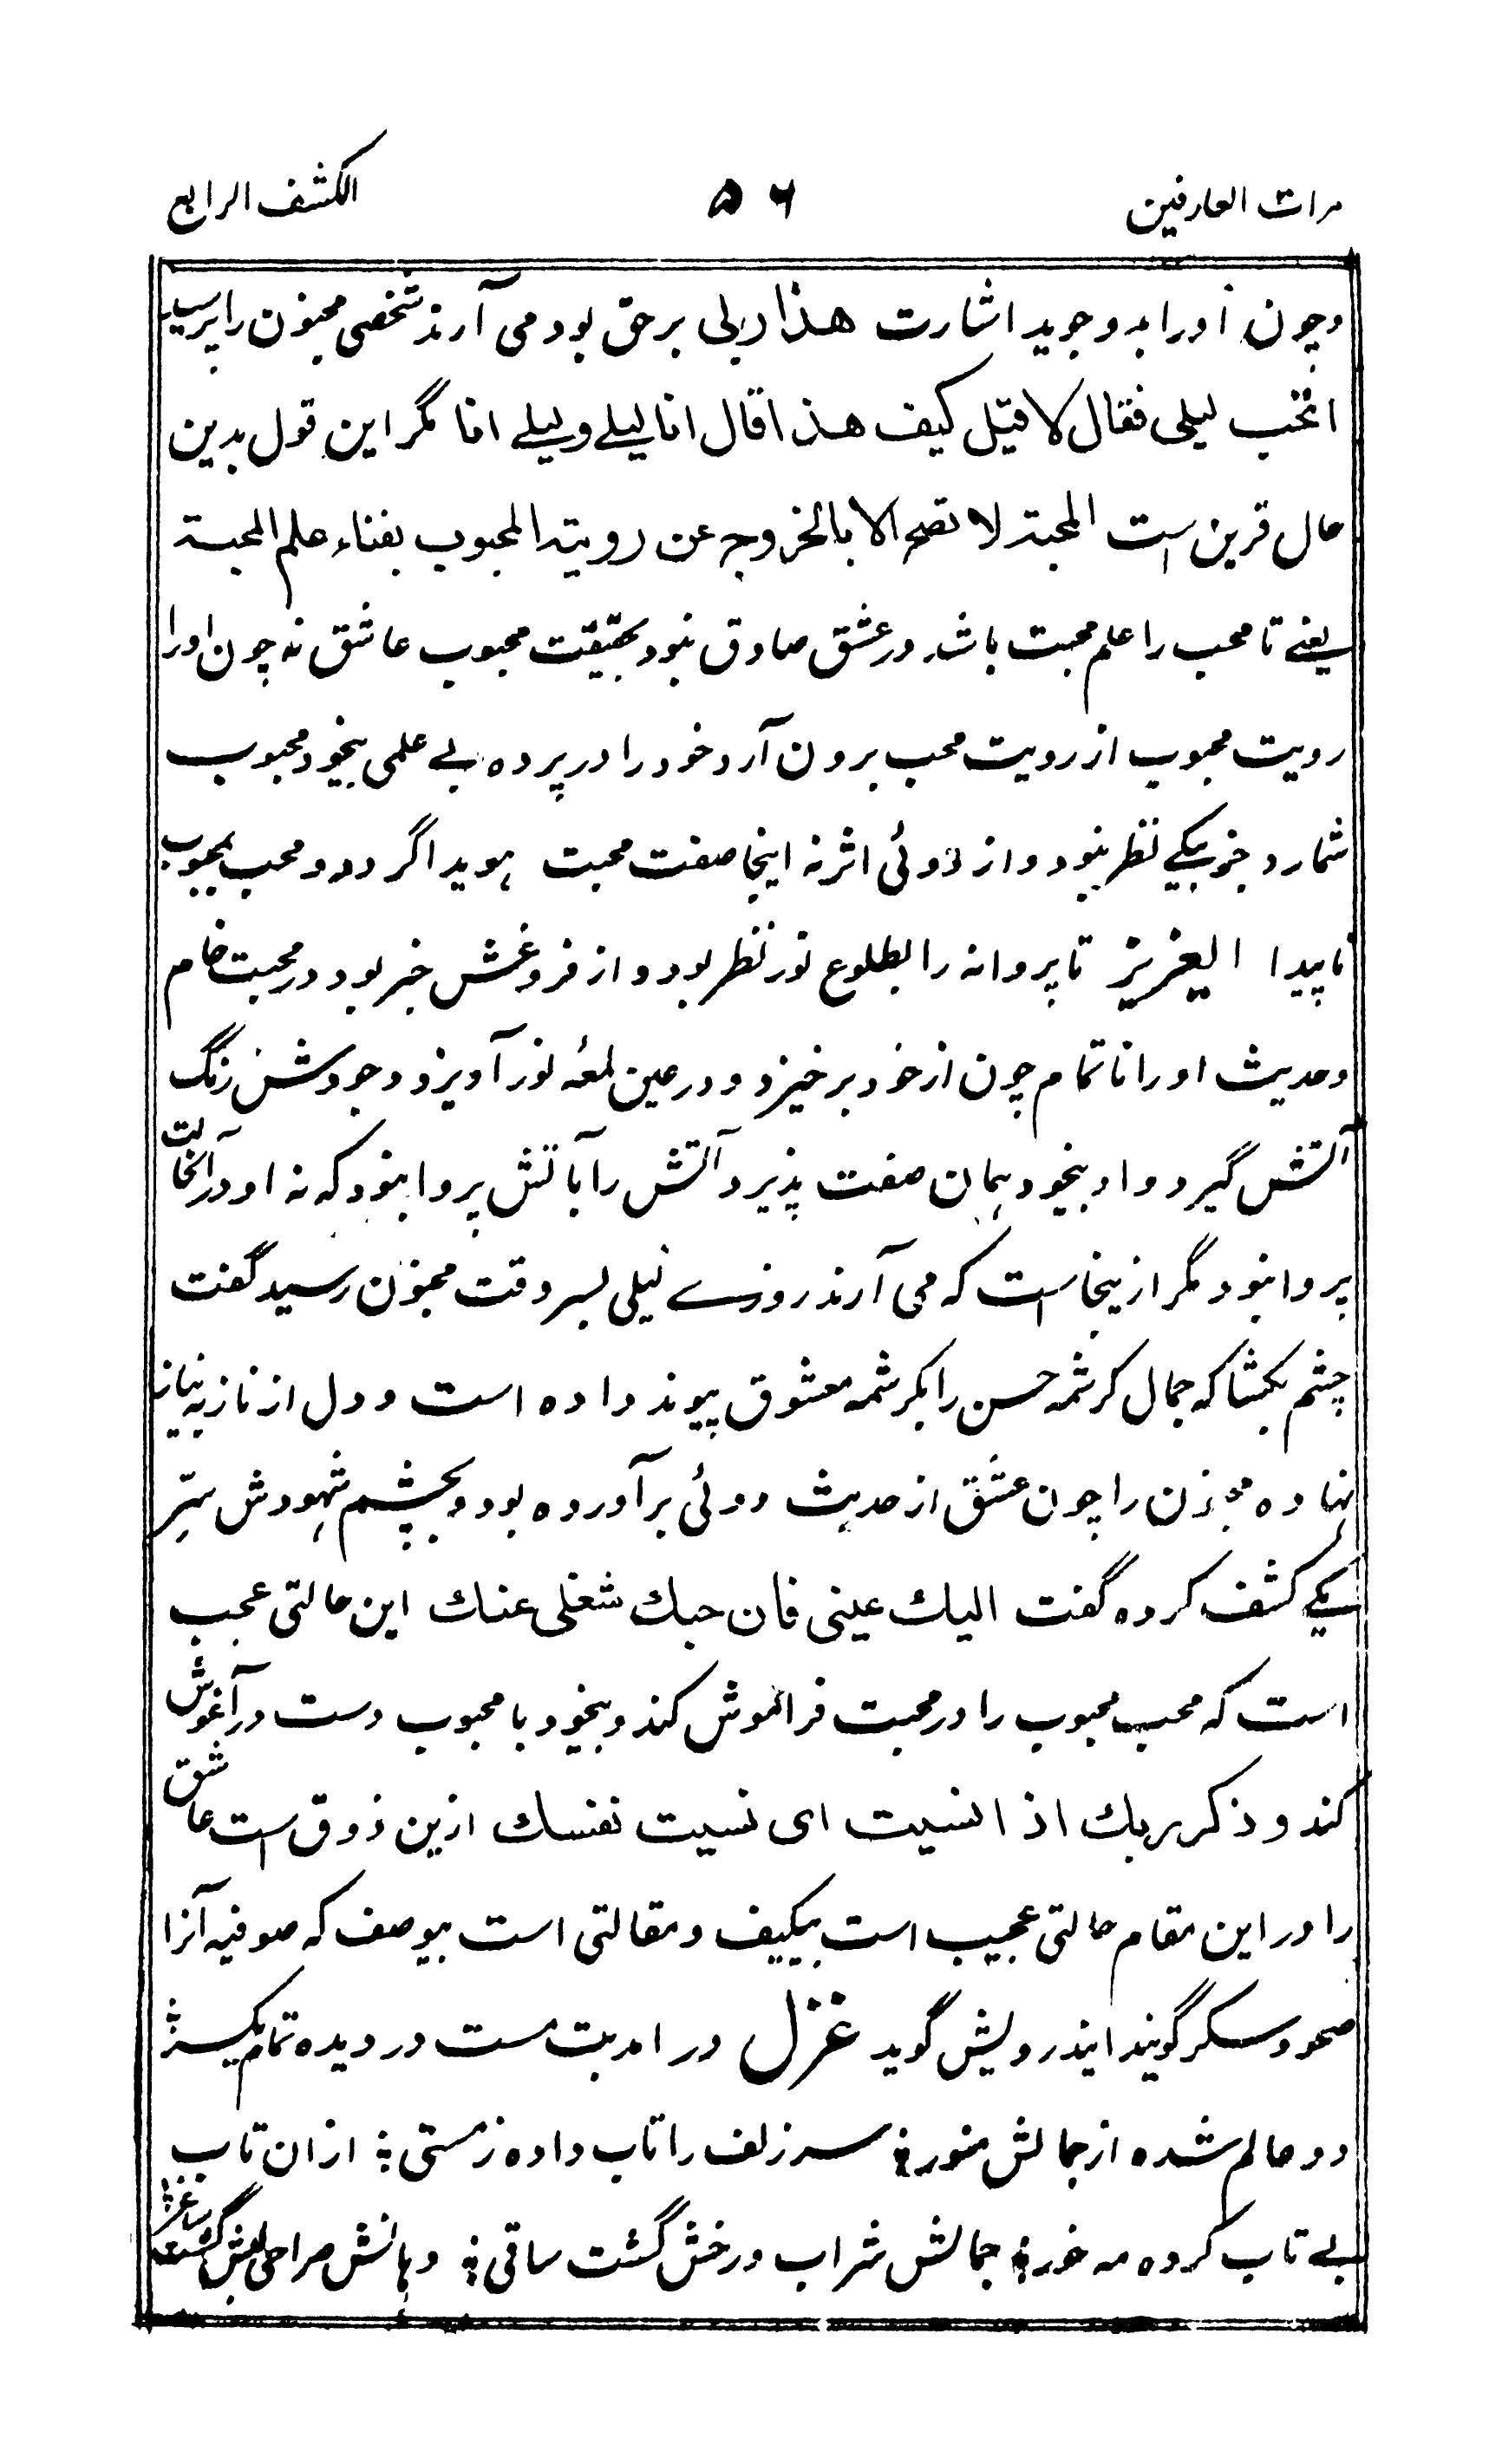 مرات العارفین ۵۶ الکشف الرابع
وچون اورا بدو جوید اشارت هذا ربی برحق بود می آرند شخصی مجنون را پرسید
اتحب لیلی فقال لا قیل کیف هذا قال انا لیلے ولیلے انا مگر این قول بدین
حال قرین است المحبة لا تصح الا بالخروج عن رویة المحبوب بفناء علم المحبة
یعنے تا محب را علم محبت باشد در عشق صادق نبود بحقیقت محبوب عاشق نہ چون اورا
رویت محبوب از رویت محب برون آرد خود را در پردہ بے علمی بیخود محبوب
شمارد جز یکے نظر نبود و از دوئی اثر نہ اینجا صفت محبت ہویدا گردد و محب بمحبوب
ناپیدا ایعزیز تا پروانہ را بطلوع نور نظر بود و از فروغش خبر بود در محبت خام
وحدیث اورا ناتمام چون از خود برخیزد و در عین لمعہ نور آویزد وجودش رنگ
آتش گیرد و او بیخود ہمان صفت پذیرد آتش را بآتش پروا نبود کہ نہ او درآنحالت
پروا نبود مگر ازینجاست کہ می آرند روزے لیلی بسر وقت مجنون رسید گفت
چشم بکشا کہ جمال کرشمہ حسن را بکرشمہ معشوق پیوند دادہ است و دل از ناز بہ نیاز
نہادہ مجنون را چون عشق از حدیث دوئی برآوردہ بود و بچشم شہودش سِرّ
یکے کشف کردہ گفت الیك عینی فان حبك شغلی عنك این حالتی عجب
است کہ محب محبوب را در محبت فراموش کند و بیخود با محبوب دست درآغوش
کند و ذکر ربك اذا نسیت ای نسیت نفسك ازین ذوق است عاشق
را در این مقام حالتی عجیب است بیکیف و مقالتی است بیوصف کہ صوفیہ آنرا
صحو و سکر گویند ایندرویش گوید غزل در امد بت مست در دیدہ تمام یکسر
دو عالم شدہ از جمالش منور ؛ سر زلف را تاب دادہ ز مستی ؛ ازان تاب
بے تاب کردہ مہ خور ؛ جمالش شراب و رخش گشت ساقی ؛ دہانش صراحی لبش گشت ساغر